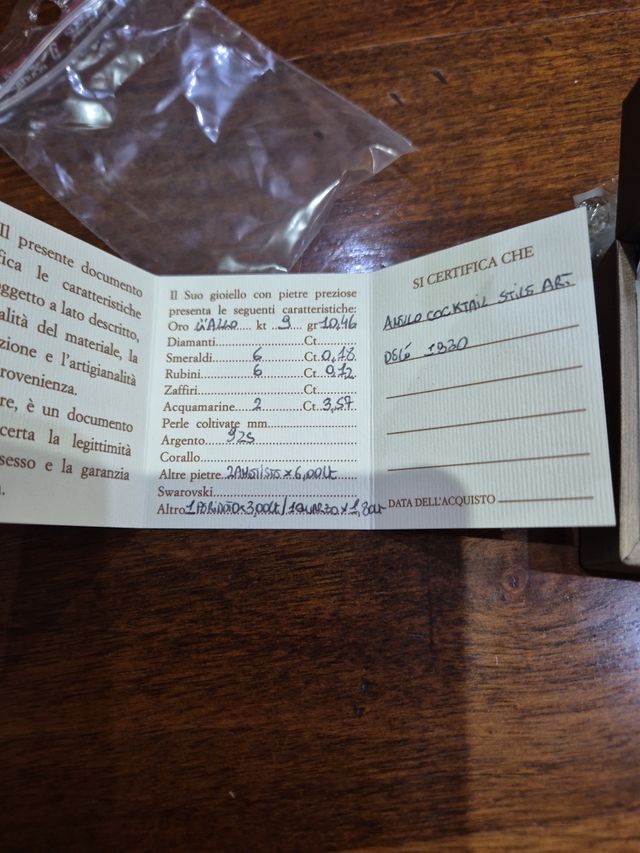 Il presente documento
fica le caratteristiche
ggetto a lato descritto,
alità del materiale, la
zione e l'artigianalità
rovenienza.
re, è un documento
certa la legittimità
sesso e la garanzia
Il Suo gioiello con pietre preziose
presenta le seguenti caratteristiche:
Oro GIALLO kt 9 gr 10,46
Diamanti Ct.
Smeraldi 6 Ct. 0,18
Rubini 6 Ct. 0,12
Zaffiri Ct.
Acquamarine 2 Ct. 3,57
Perle coltivate mm.
Argento 925
Corallo
Altre pietre 2 AMETISTE x 6,00 ct
Swarovski
Altro 1 PERIDOTO x 3,00 ct / 1 QUARZO x 1,80 ct
SI CERTIFICA CHE
ANELLO COCKTAIL STILE ART
DECÒ 1930
DATA DELL'ACQUISTO